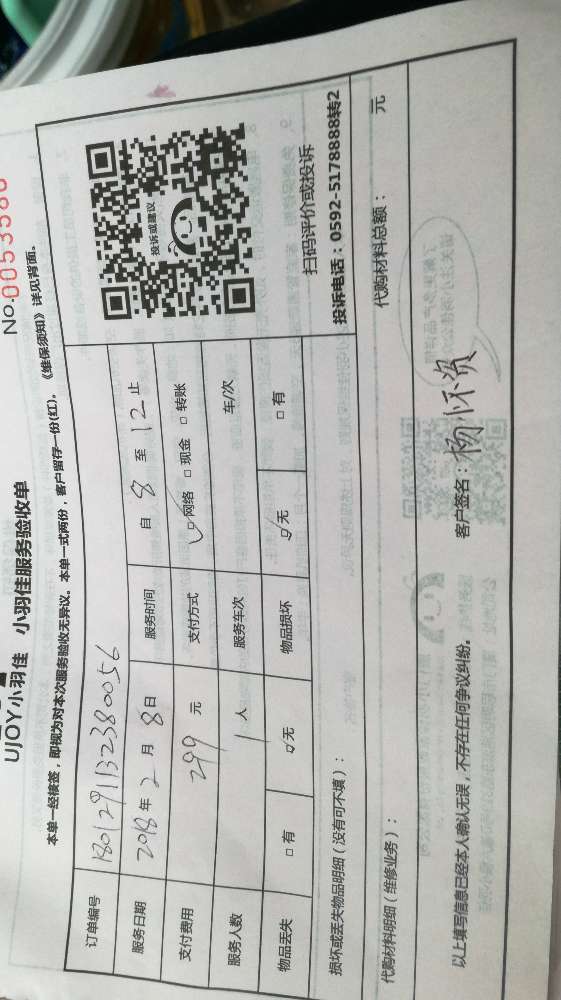 UJOY小羽佳 小羽佳服务验收单
No.0053586
本单一经接签，即视为对本次服务验收无异议。本单一式两份，客户留存一份(红)。《维保须知》详见背面。
订单编号 1801291132380056
服务日期 2018年2月8日 服务时间 自8至12止
支付费用 299元 支付方式 ☑网络 □现金 □转账
服务人数 1人 服务车次 车/次
物品丢失 □有 ☑无 物品损坏 ☑无 □有
投诉或建议
扫码评价或投诉
投诉电话：0592-5178888转2
损坏或丢失物品明细（没有可不填）：
代购材料明细（维修业务）： 代购材料总额： 元
以上填写信息已经本人确认无误，不存在任何争议纠纷。 客户签名：杨怀资